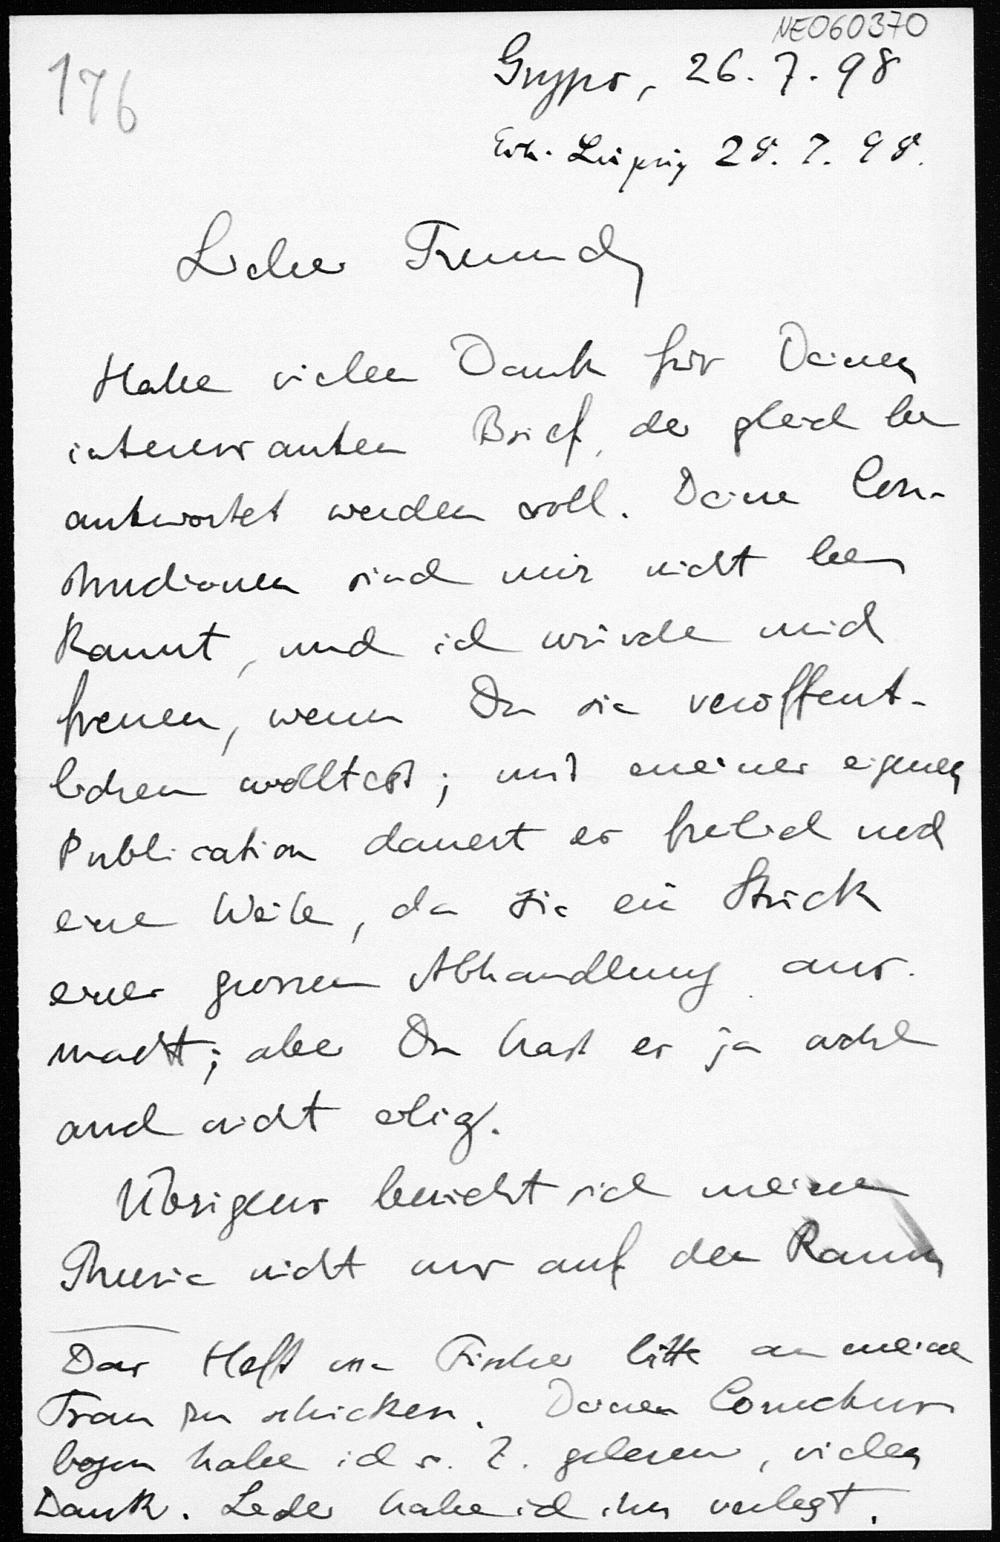 NE060370
176
Grypo, 26. 7. 98
Erh. Leipzig 28. 7. 98.
Lieber Freund
Habe vielen Dank für Deinen
interessanten Brief, der gleich be
antwortet werden soll. Deine Con-
structionen sind mir nicht be
kannt, und ich würde mich
freuen, wenn Du sie veröffent-
lichen wolltest; mit meiner eigenen
Publication dauert es freilich noch
eine Weile, da sie ein Stück
einer grossen Abhandlung aus-
macht; aber Du hast es ja wohl
auch nicht eilig.
Übrigens bezieht sich meine
Theorie nicht nur auf den Raum
Das Heft von Fischer bitte an meine
Frau zu schicken. Deinen Correctur
bogen habe ich s. Z. gelesen, vielen
Dank. Leider habe ich ihn verlegt.